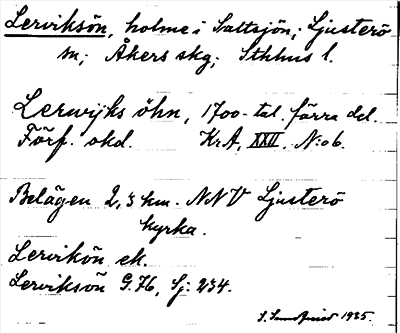 Lerviksön, holme i Saltsjön; Ljusterö
sn; Åkers skg; Sthlms l.
Lerwijks öhn, 1700-tal. förra del.
Förf. okd. KrA, XXII, N:o 6.
Belägen 2,3 km. NNV Ljusterö
kyrka.
Lervikön ek.
Lerviksön G.76, Sj: 234.
1935.